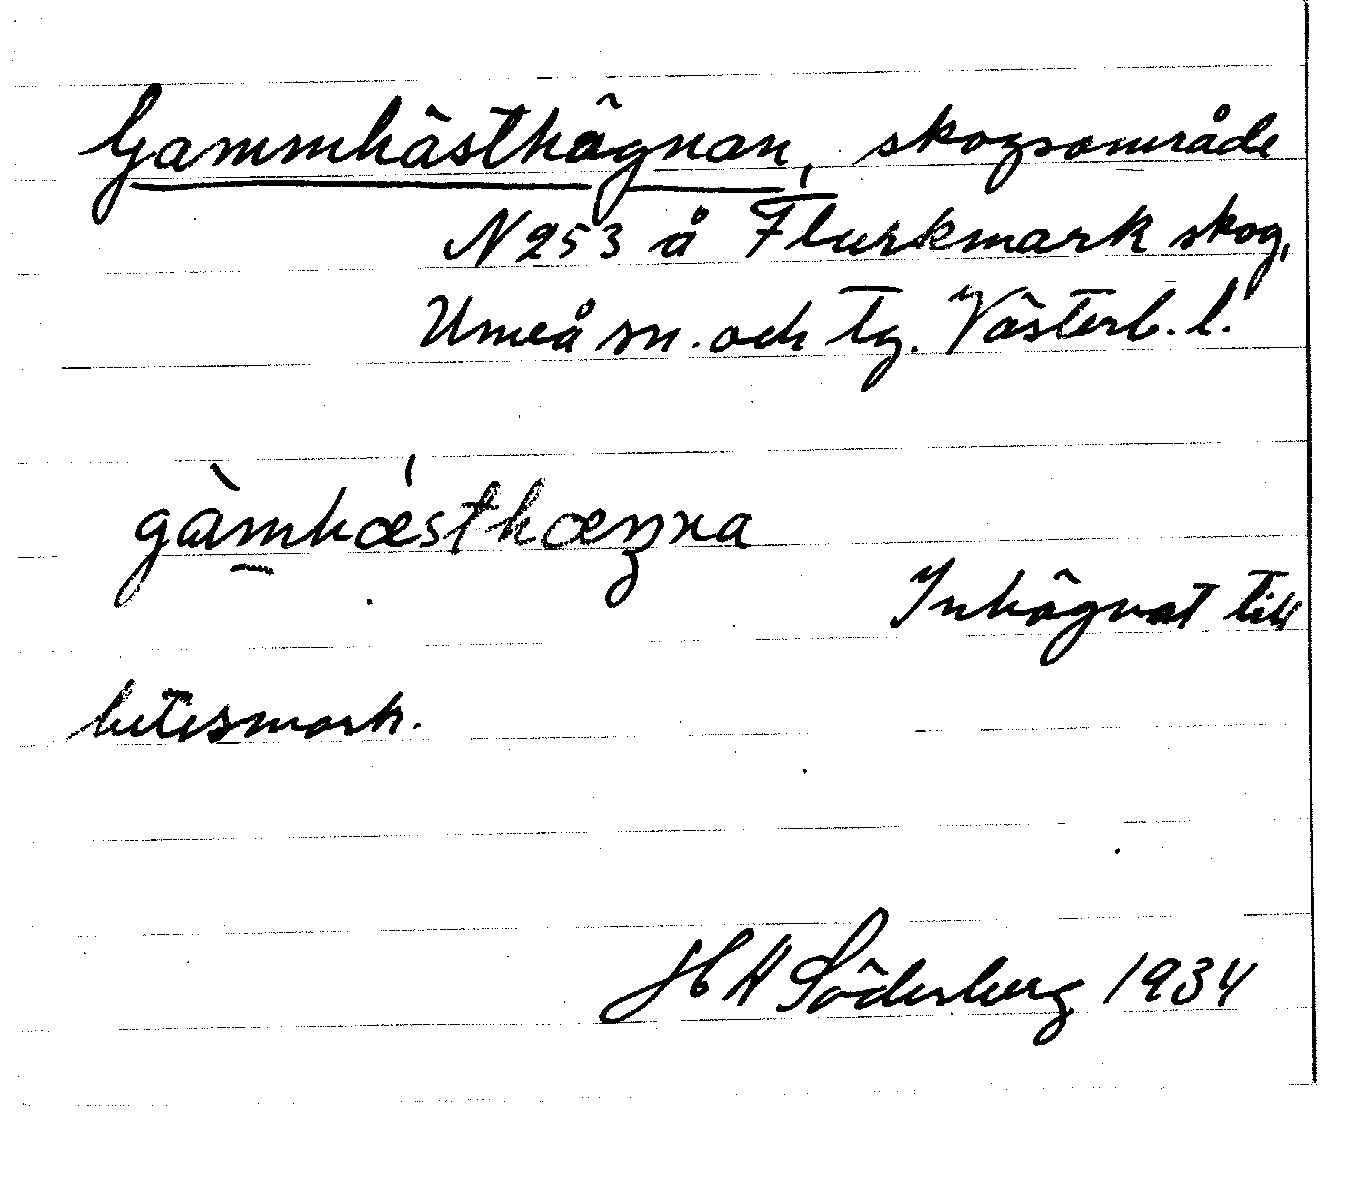 Gammhästhägnan, skogsområde
N 253 å Flurkmark skog,
Umeå sn. och tg. Västerb. l.
gàmhǽsthæŋna
Inhägnat till
betesmark.
H A Söderberg 1934